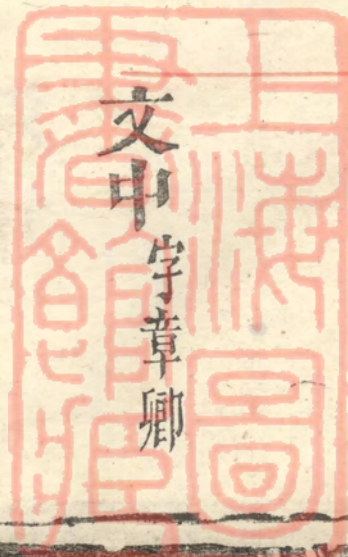 文中字章卿
上海圖
書館藏